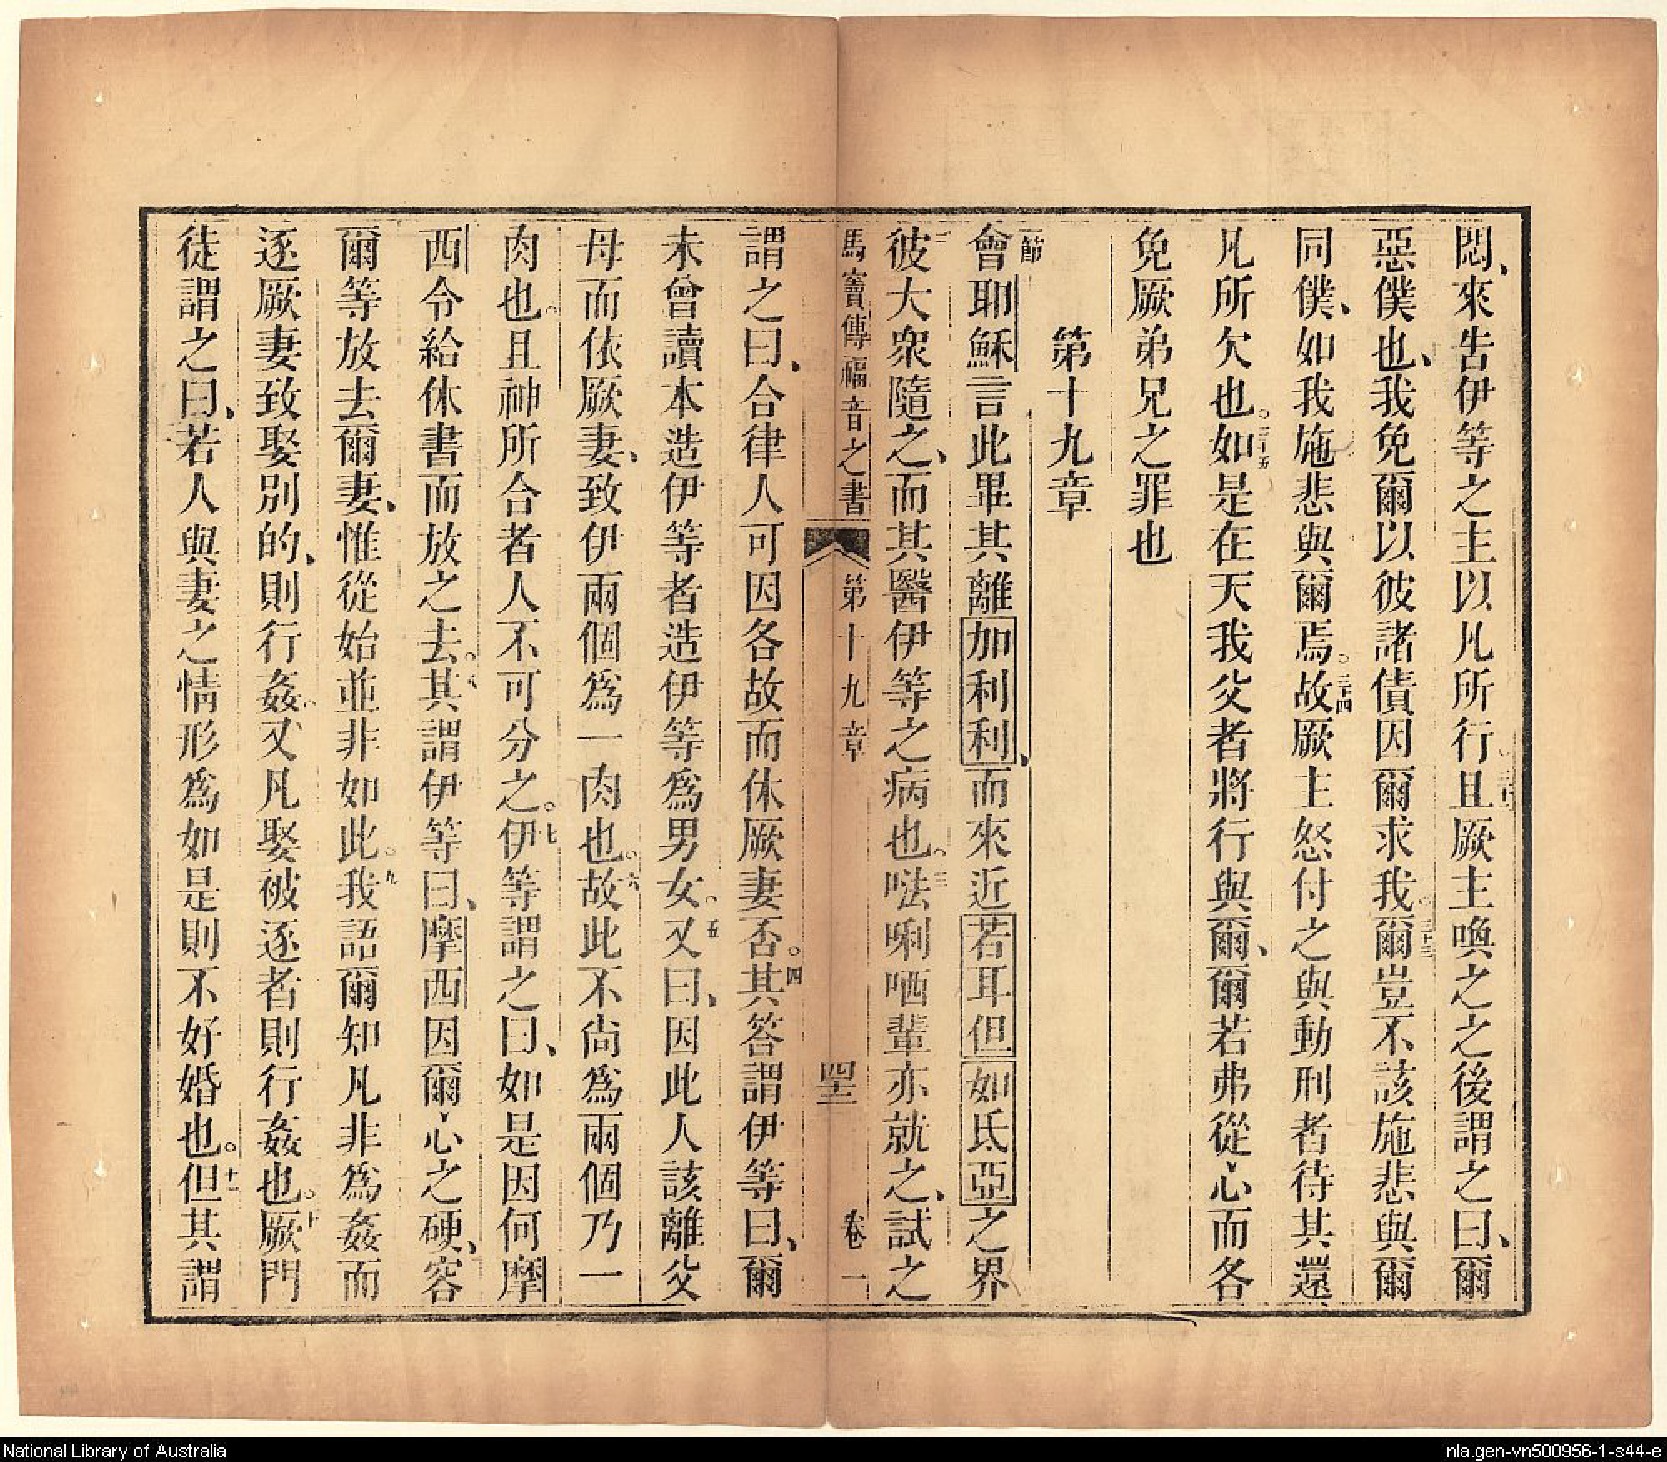 悶、來告伊等之主以凡所行且厥主喚之之後謂之曰、爾
惡僕也、我免爾以彼諸債因爾求我。爾豈不該施悲與爾
同僕、如我施悲與爾焉。三十四故厥主怒付之與動刑者待其還、
凡所欠也。三十五如是在天我父者將行與爾、爾若弗從心而各
免厥弟兄之罪也
第十九章
一節會耶穌言此畢其離加利利、而來近若耳但如氐亞之界
彼大衆隨之、而其醫伊等之病也。三𠵽唎哂輩亦就之、試之
馬竇傳福音之書 第十九章 四十三 卷一
謂之曰、合律人可因各故而休厥妻否。四其答謂伊等曰、爾
未曾讀本造伊等者造伊等爲男女。五又曰、因此人該離父
母而依厥妻、致伊兩個爲一肉也。六故此不尚爲兩個乃一
肉也。且神所合者人不可分之。七伊等謂之曰、如是因何摩
西令給休書而放之去。八其謂伊等曰、摩西因爾心之硬、容
爾等放去爾妻、惟從始並非如此。九我語爾知凡非爲姦而
逐厥妻致娶別的、則行姦、又凡娶被逐者則行姦也。十厥門
徒謂之曰、若人與妻之情形爲如是則不好婚也。十一但其謂
National Library of Australia
nla.gen-vn500956-1-s44-e